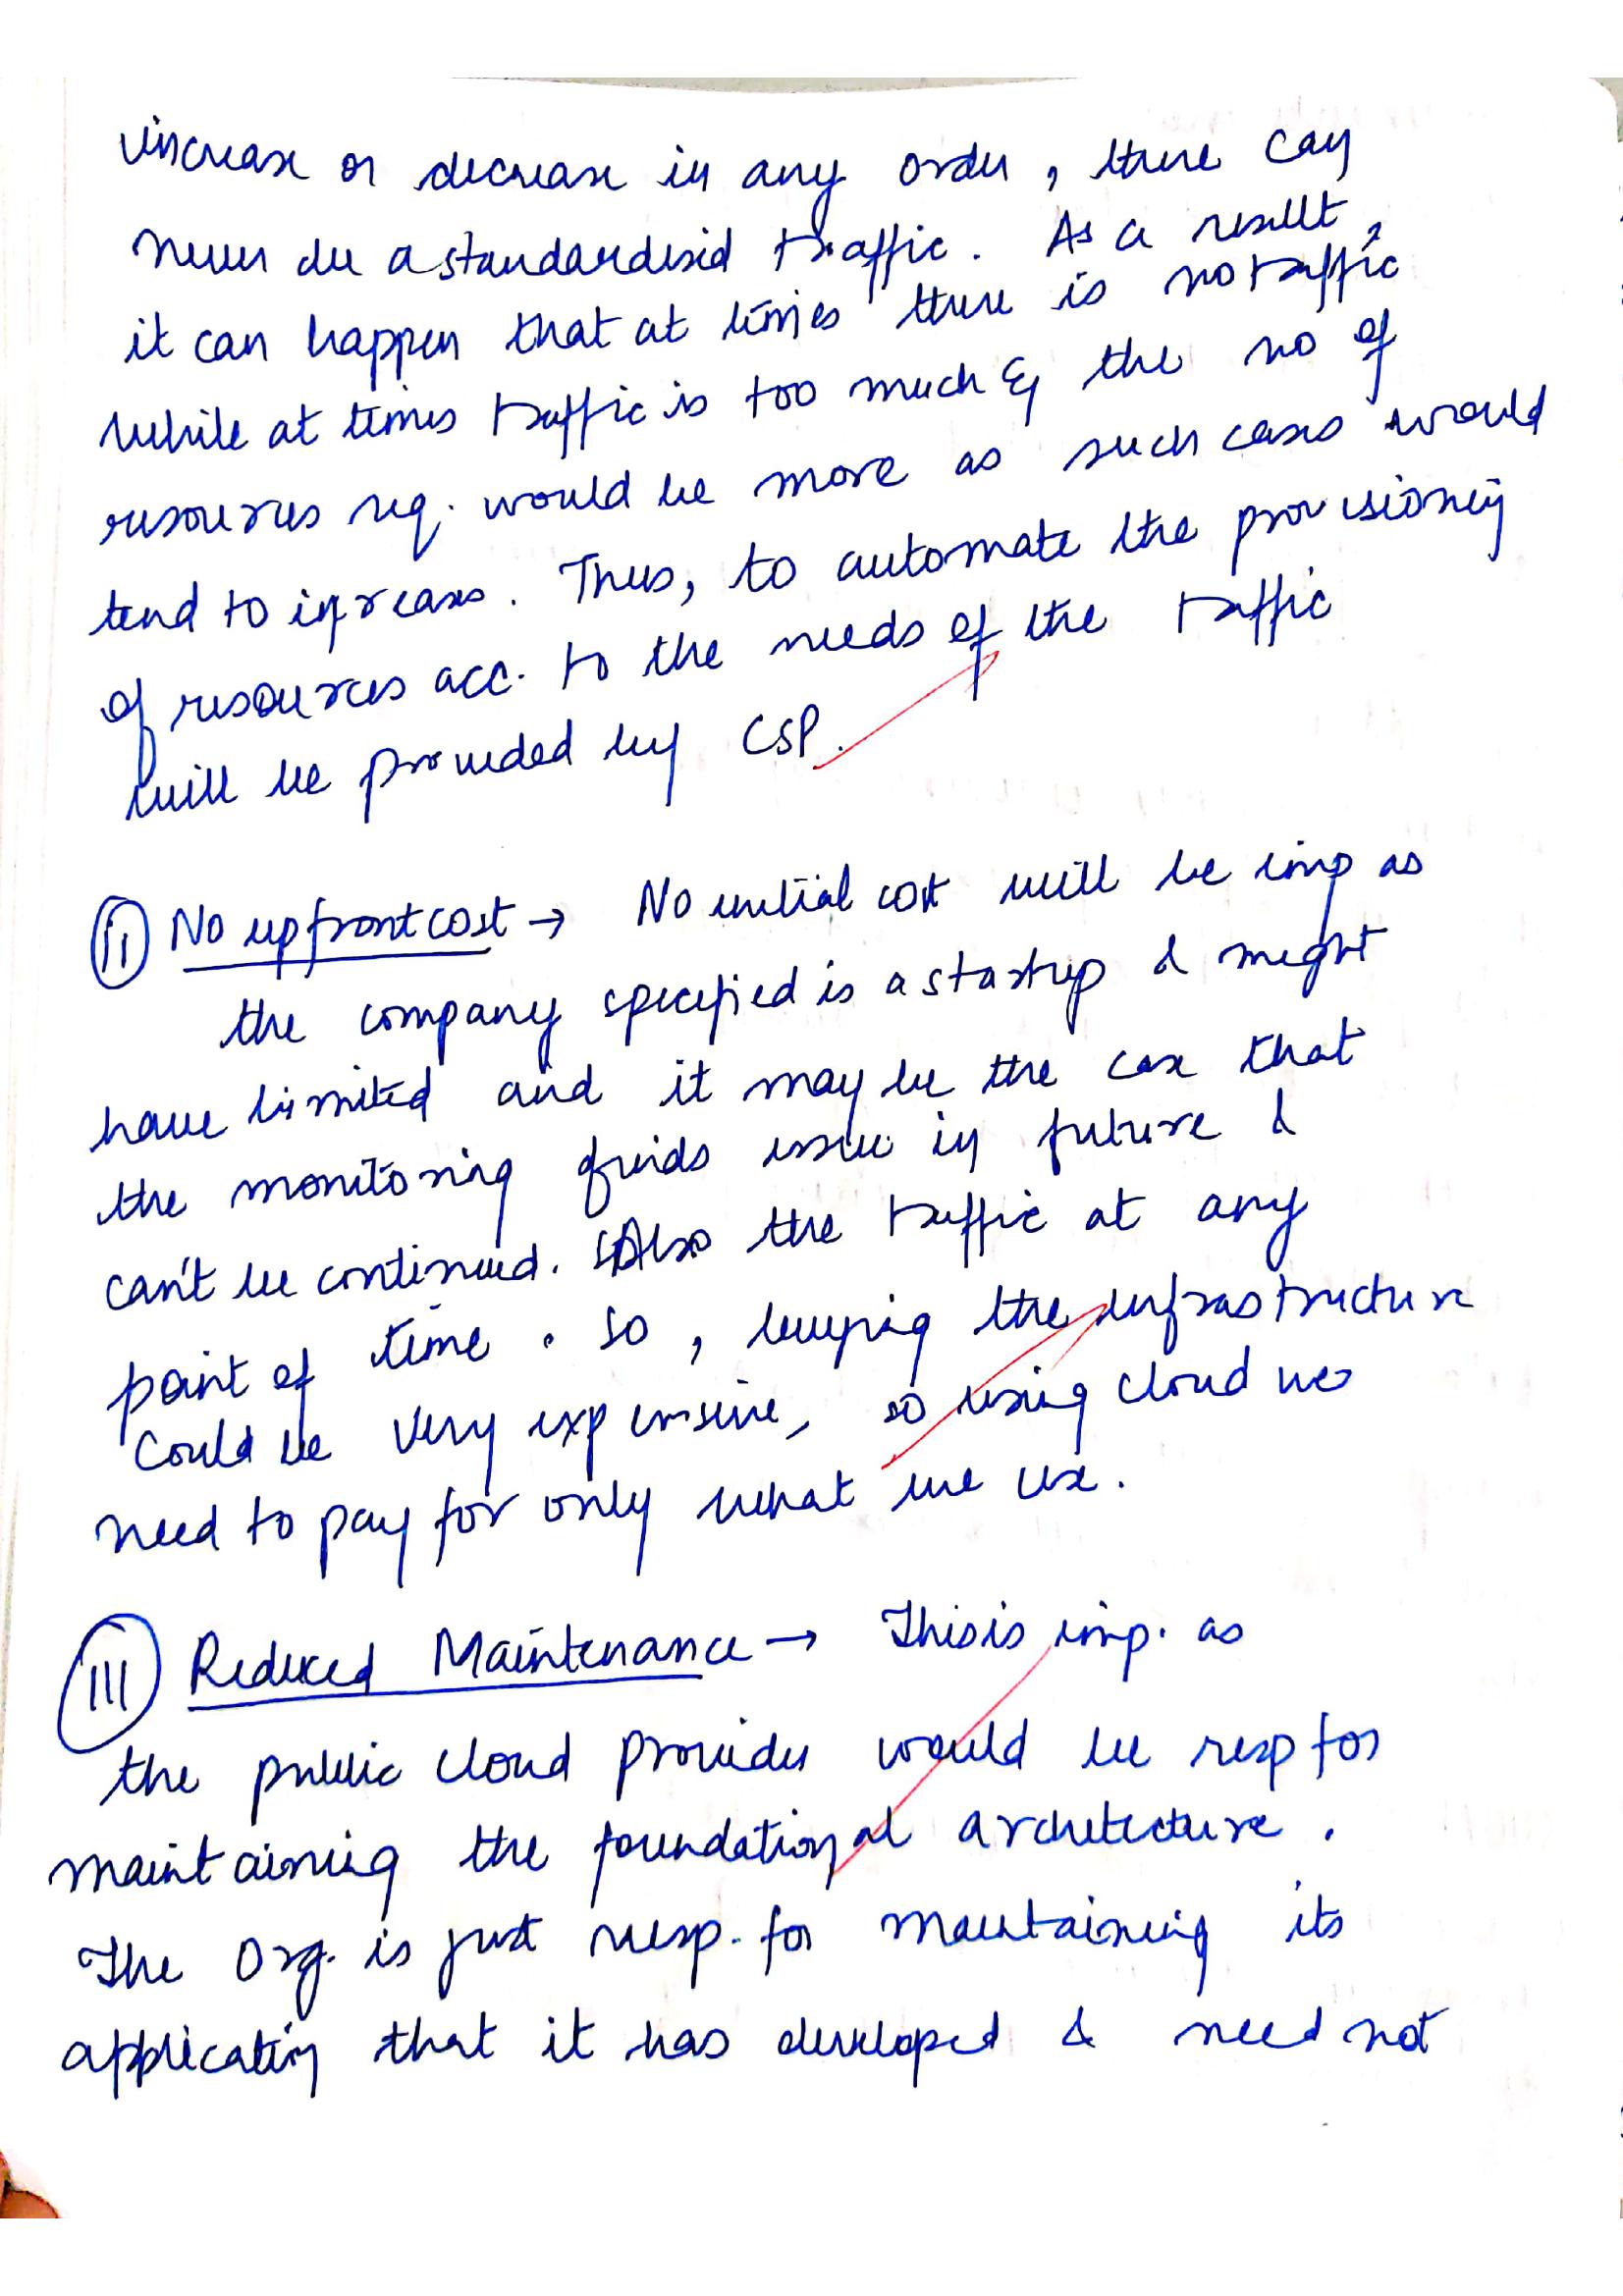 increase or decrease in any order, there can
never be a standardised traffic. As a result,
it can happen that at times there is no traffic
while at times traffic is too much & the no of
resources req. would be more as such cases would
tend to increase. Thus, to automate the provisioning
of resources acc. to the needs of the traffic
will be provided by CSP.
(ii) No upfront cost → No initial cost will be imp as
the company specified is a startup & might
have limited and it may be the case that
the monitoring funds issue in future &
can't be continued. Also the traffic at any
point of time. So, buying the infrastructure
Could be very expensive, so using cloud we
need to pay for only what we use.
(iii) Reduced Maintenance → This is imp. as
the public cloud provider would be resp for
maintaining the foundational architecture.
The Org. is just resp. for maintaining its
application that it has developed & need not